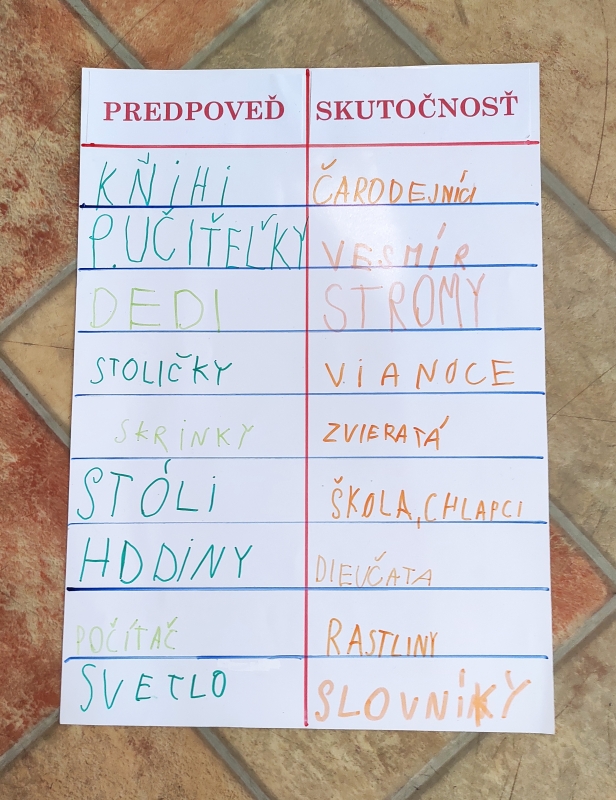 PREDPOVEĎ SKUTOČNOSŤ
KŇIHI ČARODEJNíCI
P.UČIŤEĽKY VESMÍR
DEDI STROMY
STOLIČKY VIANOCE
SKRiNKY ZVIERATÁ
STÓLi ŠKOLA,CHLAPCI
HODiNY DIEUČATA
POČÍTAČ RASTLINY
SVETLO SLOVNíKY